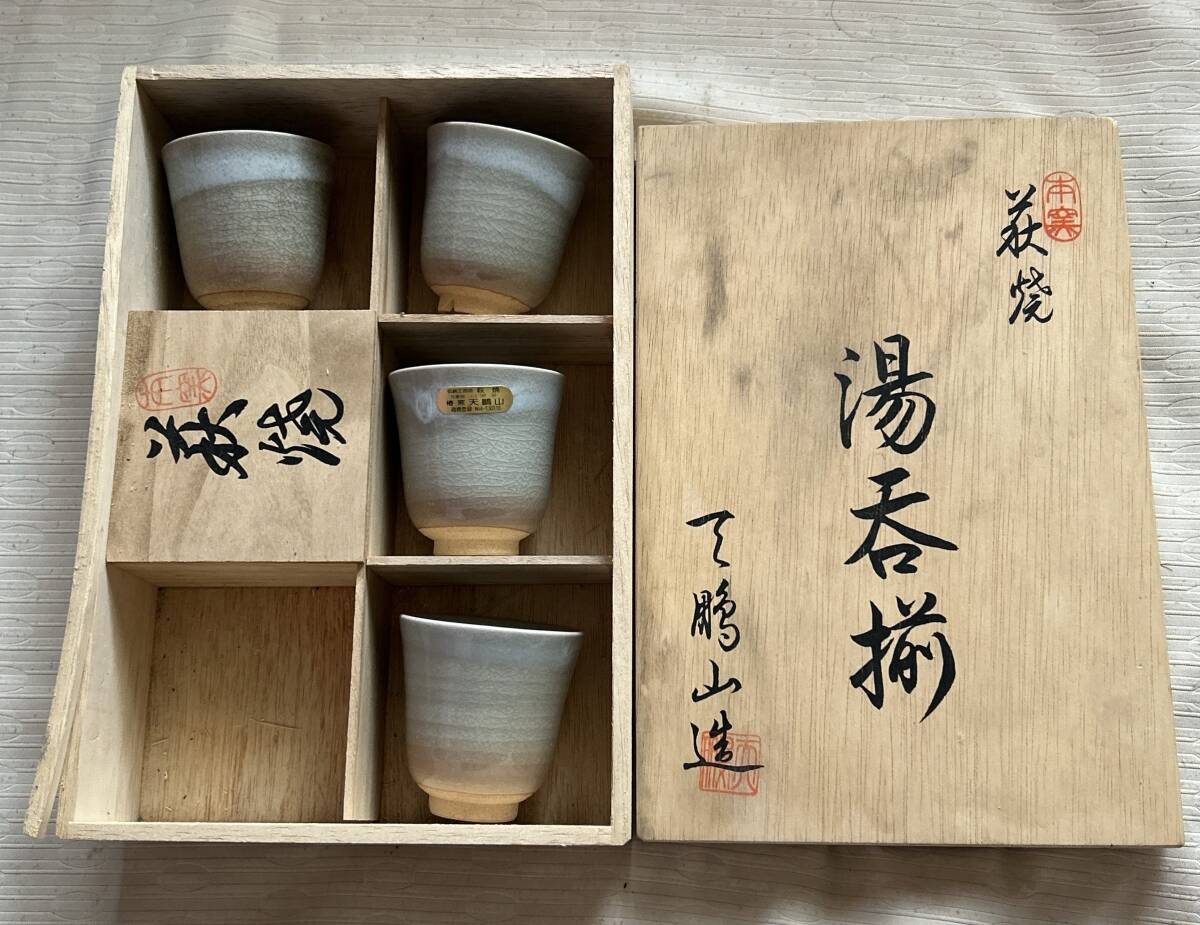 本窯
萩焼
湯呑揃
天鵬山造
萩焼
萩焼
椿窯 天鵬山